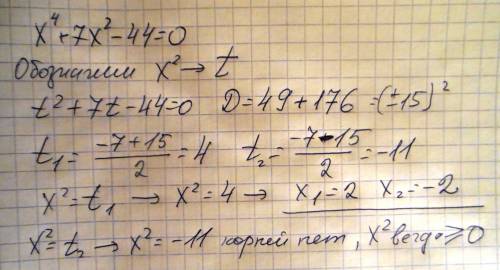 x⁴+7x²-44=0
Обозначим x² → t
t²+7t-44=0 D=49+176=(±15)²
t₁=(-7+15)/2=4 t₂=(-7-15)/2=-11
x²=t₁ → x²=4 → x₁=2 x₂=-2
x²=t₂ → x²=-11 корней нет, x² всегда ≥0